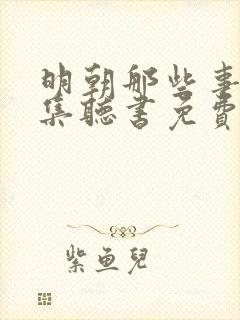 明朝那些事
集聽書免費
紫魚兒